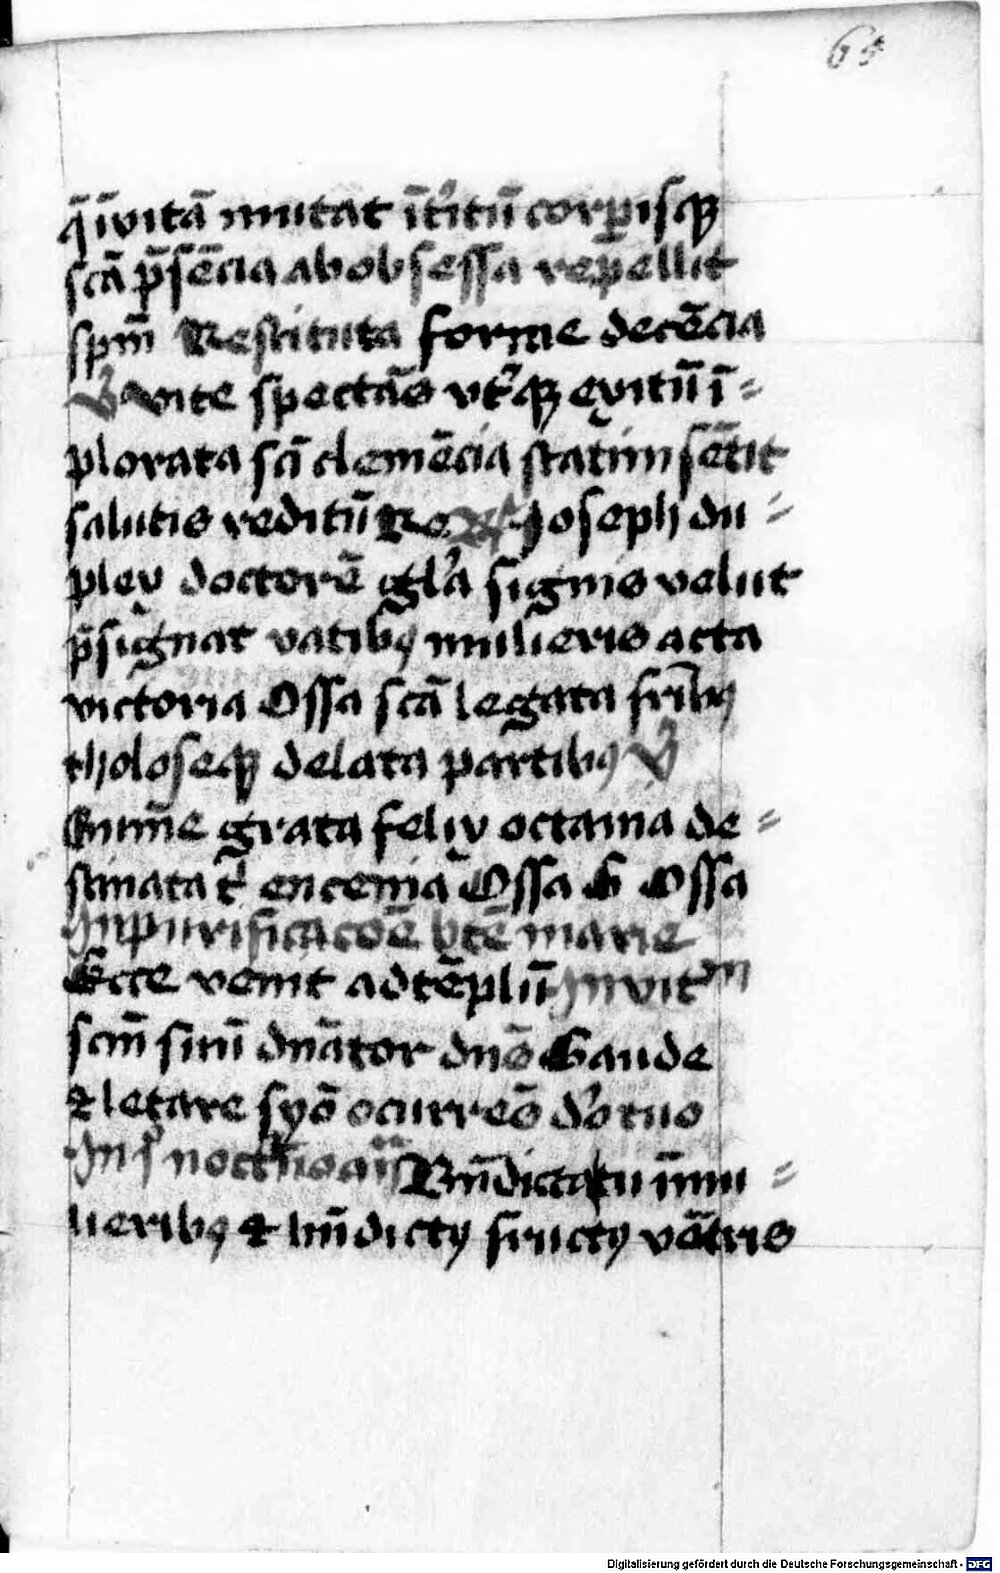 65
q̄ ī vitā mutat īt'itū corp̱isqꝫ
scā p̄sēcia ab obsessa rep̱ellit
sp̄m Restituta forme decēcia
V̉ vite spectās vt'qꝫ exitū ī=
plorata sc̄i clemēcia statim sētit
salutis reditū Re R Joseph du=
plex doctorē gl'a signis velut
p̄signat vatibꝰ mulieris acta
victoria Ossa scā legata fr̄ibꝰ
tholoseqꝫ delata partibꝰ V̉
Num̄e grata felix octaua de=
stinata t' encenia Ossa G Ossa
In purificacōe bt̄e marie
Ecce venit ad tēplū Invit m
scm̄ suū dn̄ator dn̄s Gaude
⁊ letare syō ocurrēs d'o tuo
In j noct'no an̄ Bn̄dicta tu ī mu=
lieribꝰ ⁊ bn̄dictꝰ fructꝰ vētris
Digitalisierung gefördert durch die Deutsche Forschungsgemeinschaft - DFG